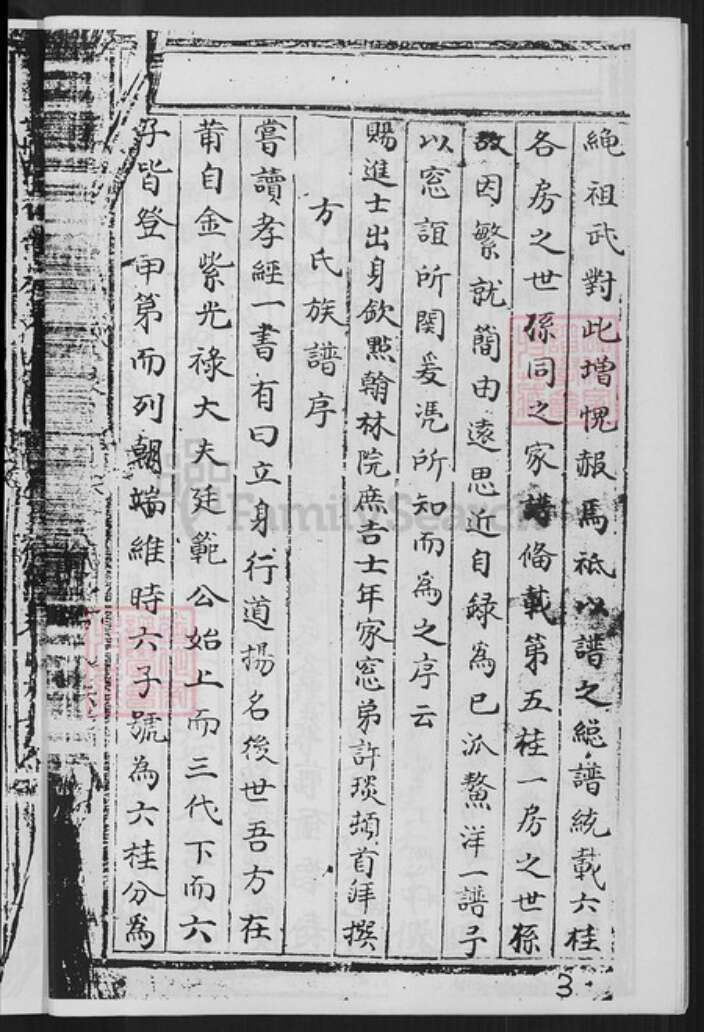 繩祖武對此增愧赧焉祗以譜之總譜統載六桂
各房之世孫同之家譜備載第五桂一房之世孫
故因繁就簡由遠思近自録為已派鰲洋一譜予
以窓誼所関爰凴所知而為之序云
賜進士出身欽㸃翰林院庶吉士年家窓弟許琰頓首拜撰
方氏族譜序
嘗讀孝經一書有曰立身行道揚名後世吾方在
莆自金紫光祿大夫廷範公始上而三代下而六
子皆登甲第而列朝端維時六子號為六桂分為
3
FamilySearch